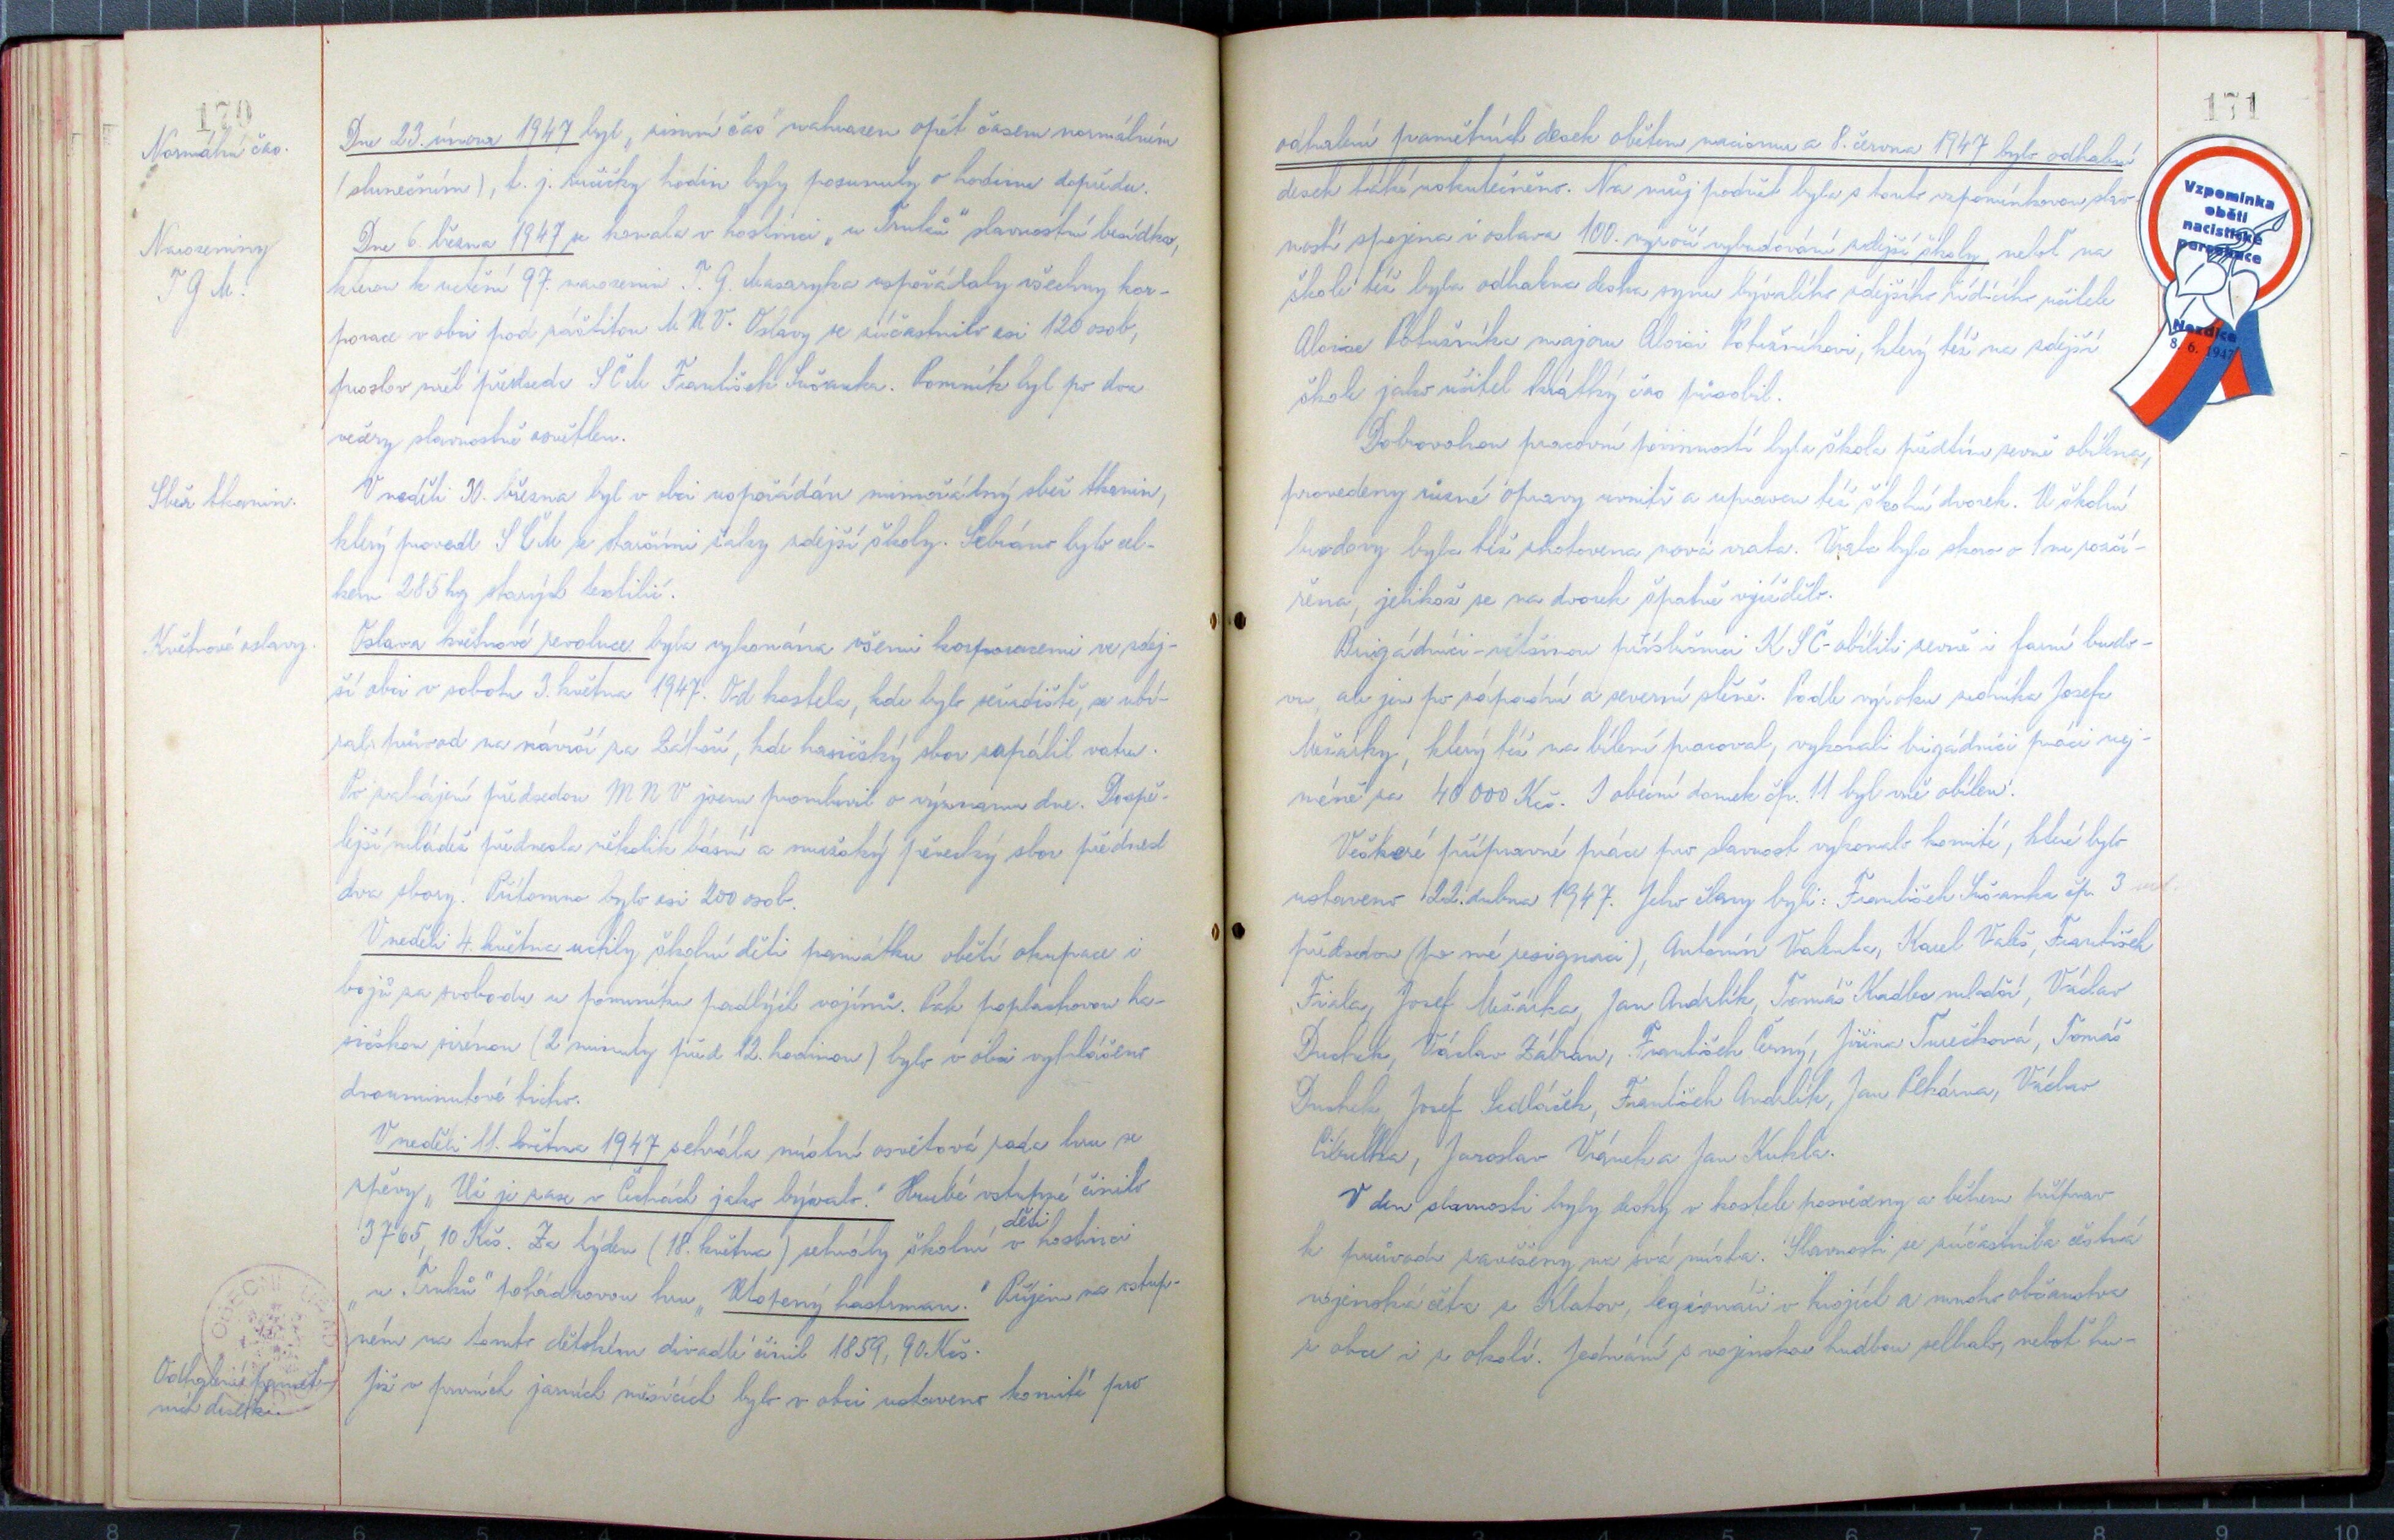 170
Normální čas.
Dne 23. února 1947 byl „zimní čas" nahrazen opět časem normálním
(slunečním), t. j. ručičky hodin byly posunuty o hodinu dopředu.
Narozeniny
T G M.
Dne 6. března 1947 se konala v hostinci „u Trnků" slavnostní besídka,
kterou k uctění 97. narozenin T. G. Masaryka uspořádaly všechny kor-
porace v obci pod záštitou M N V. Oslavy se zúčastnilo asi 120 osob,
proslov měl předseda S Č M František Sušanka. Pomník byl po dva
večery slavnostně osvětlen.
Sběr tkanin.
V neděli 30. března byl v obci uspořádán mimořádný sběr tkanin,
který provedl S Č M se staršími žáky zdejší školy. Sebráno bylo cel-
kem 285 kg starých textilií.
Květnové oslavy.
Oslava květnové revoluce byla vykonána všemi korporacemi ve zdej-
ší obci v sobotu 3. května 1947. Od kostela, kde bylo seřadiště, se ubí-
ral průvod na návrší za Záhoří, kde hasičský sbor zapálil vatru.
Po zahájení předsedou M N V jsem promluvil o významu dne. Dospě-
lejší mládež přednesla několik básní a mužský pěvecký sbor přednesl
dva sbory. Přítomno bylo asi 200 osob.
V neděli 4. května uctily školní děti památku obětí okupace i
bojů za svobodu u pomníku padlých vojínů. Pak poplachovou ha-
sičskou sirénou (2 minuty před 12. hodinou) bylo v obci vyhlášeno
dvouminutové ticho.
V neděli 11. května 1947 sehrála místní osvětová rada hru se
zpěvy „Už je zase v Čechách jako bývalo." Hrubé vstupné činilo
3765,10 Kčs. Za týden (18. května) sehrály školní děti v hostinci
„u Trnků" pohádkovou hru „Utopený hastrman." Příjem na vstup-
ném na tomto dětském divadle činil 1859,90 Kčs.
OBECNÍ ÚŘAD
Odhalení pamět-
ních desek.
Již v prvních jarních měsících bylo v obci ustaveno komité pro
171
odhalení pamětních desek obětem nacismu a 8. června 1947 bylo odhalení
desek také uskutečněno. Na můj podnět byla s touto vzpomínkovou slav-
ností spojena i oslava 100. výročí vybudování zdejší školy, neboť na
škole též byla odhalena deska synu bývalého zdejšího řídícího učitele
Aloise Potužníka majoru Aloisi Potužníkovi, který též na zdejší
škole jako učitel krátký čas působil.
Vzpomínka
obětí
nacistické
persekuce
Nezdice
8. 6. 1947
Dobrovolnou pracovní povinností byla škola předtím zevně obílena,
provedeny různé opravy uvnitř a upraven též školní dvorek. U školní
budovy byla též zhotovena nová vrata. Vrata byla skoro o 1 m rozší-
řena, jelikož se na dvorek špatně vjíždělo.
Brigádníci - většinou příslušníci K S Č - obílili zevně i farní budo-
vu, ale jen po západní a severní stěně. Podle výroku zedníka Josefa
Mešárky, který též na bílení pracoval, vykonali brigádníci práci nej-
méně za 40 000 Kčs. I obecní domek čp. 11 byl vně obílen.
Veškeré přípravné práce pro slavnost vykonalo komité, které bylo
ustaveno 22. dubna 1947. Jeho členy byli: František Sušanka čp. 3
předsedou (po mé resignaci), Antonín Valenta, Karel Valeš, František
Fiala, Josef Mešárka, Jan Andrlík, Tomáš Kadlec mladší, Václav
Duchek, Václav Zábran, František Černý, Jiřina Turečková, Tomáš
Duchek, Josef Sedláček, František Andrlík, Jan Pekárna, Václav
Cibulka, Jaroslav Vránek a Jan Kukla.
V den slavnosti byly desky v kostele posvěceny a během příprav
k průvodu zavěšeny na svá místa. Slavnosti se zúčastnila čestná
vojenská četa z Klatov, legionáři v krojích a mnoho občanstva
z obce i z okolí. Jednání s vojenskou hudbou selhalo, neboť hu-